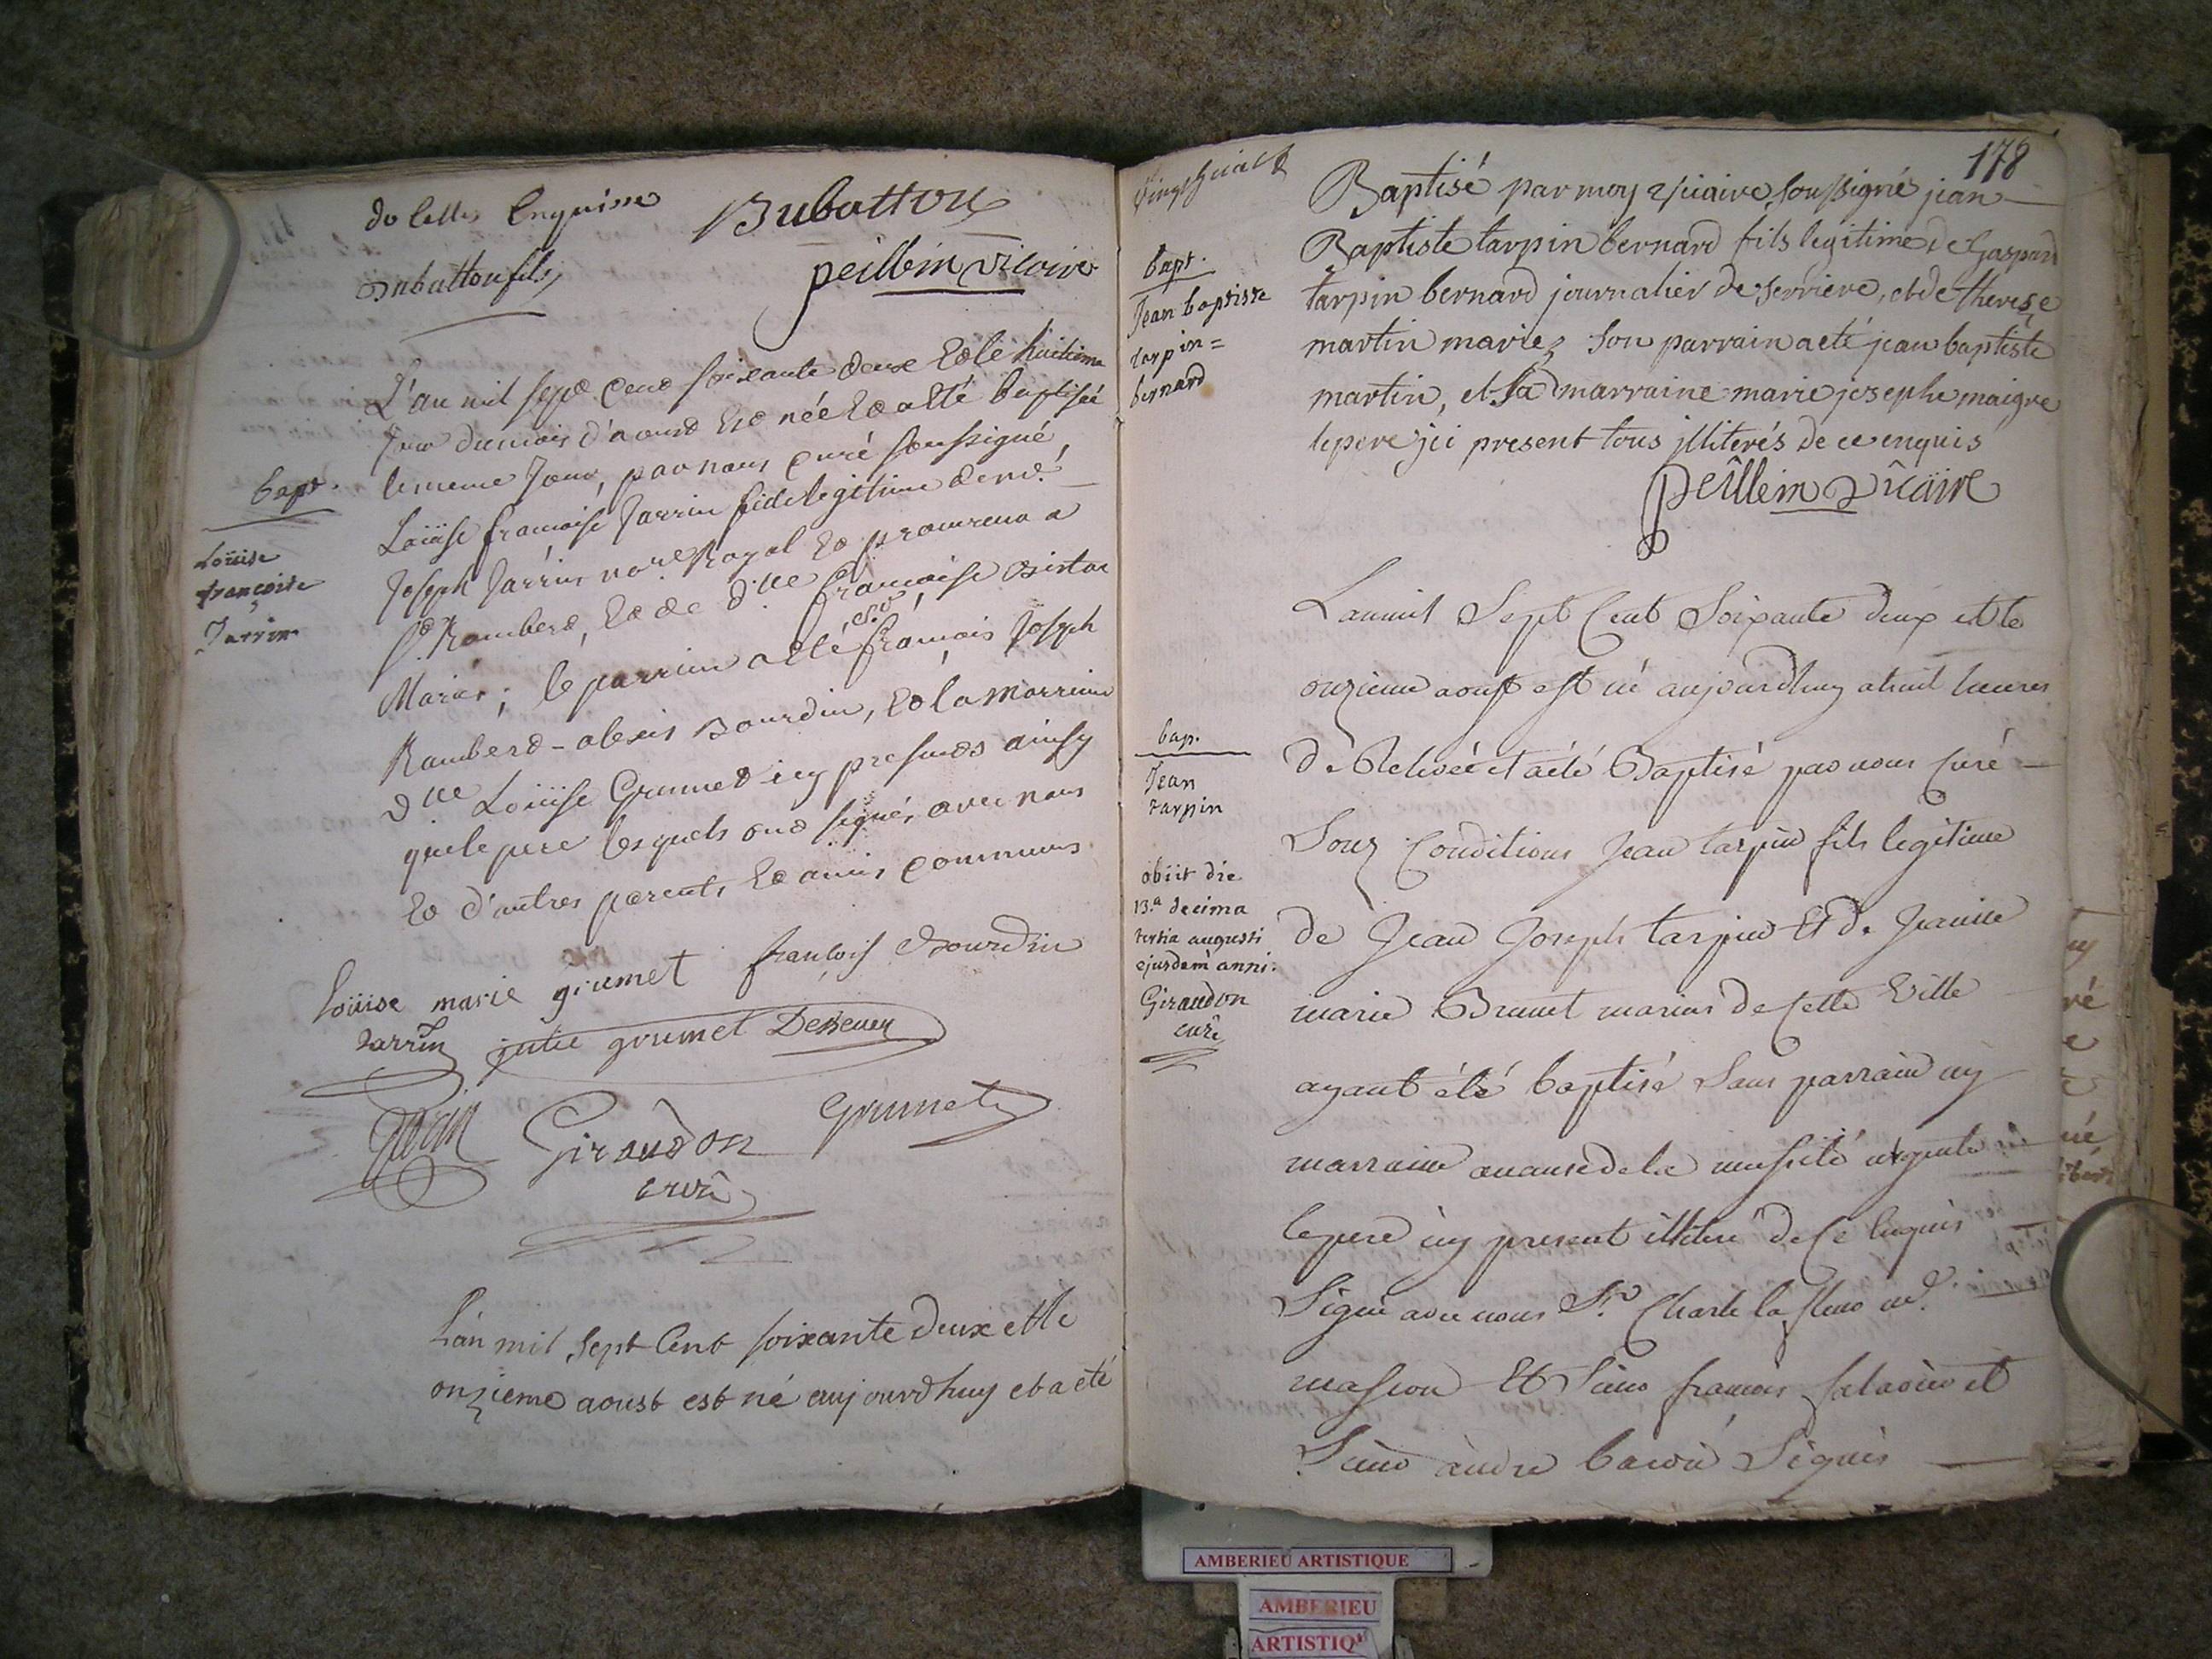 de lettes Enquisse
Dubattour
Dubattour fils
peillem vicaire
L'an mil sept cent soixante deux Et le huitieme
Jour du mois d'aoust Est née Et a été baptisée
le meme Jour, par nous curé soussigné,
Loüise françoise Jarrin fille legitime de me.
Joseph Jarrin nore Royal Et procureur a
St Rambert, Et de dlle françoise
Mariés; le parrain a été sr françois Joseph
Rambert-alexis Bourdin, Et la Marraine
dlle Loüise Grumet icy presents ainsy
que le pere lesquels ont signés avec nous
Et d'autres parents Et amis communs
bapt.
Loüise
françoise
Jarrin
loüise marie grumet
françois Bourdin
Jarrin
julie grumet
Jarin
Giraudon
curé
Grumet
L'an mil sept Cent soixante deux et le
onzieme aoust est né aujourdhuy et a eté
178
Baptisé par moy vicaire soussigné jean
Baptiste tarpin bernard fils legitime de Gaspard
tarpin bernard journalier de serriere, et de therese
martin mariez son parrain a eté jean baptiste
martin, et sa marraine marie josephe maigre
le pere ici present tous illiterés de ce enquis
peillem vicaire
bapt.
Jean baptiste
tarpin=
bernard
L'an mil Sept Cent Soixante deux et le
onzieme aoust est né aujourdhuy a huit heures
de Relevée et a été Baptisé par nous Curé
Sous Conditions Jean tarpin fils legitime
de Jean Joseph tarpin Et de Jeanne
marie Brunet mariés de Cette Ville
ayant été baptisé Sans parrain ny
marraine a cause de la necessité urgente
le pere icy present illiteré de Ce Enquis
Signé avec nous Sr. Charle la fleur md.
masson Et Sieur françois et
Sieur andré Signés
bap.
Jean
tarpin
obiit die
13.a decima
tertia augusti
ejusdem anni.
Giraudon
curé
AMBERIEU ARTISTIQUE
AMBERIEU
ARTISTIQ